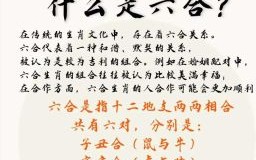 什么是六合?
在传统的生肖文化中,存在着六合关系。
六合代表着一种和谐、默契的关系,
被认为是较为吉利的组合。例如在婚姻配对中,
六合生肖的组合往往被认为比较美满幸福,
在合作方面,六合生肖的人合作可能会更加顺利
六合是指十二地支两两相合
共有六对,分别是:
子丑合(鼠与牛)